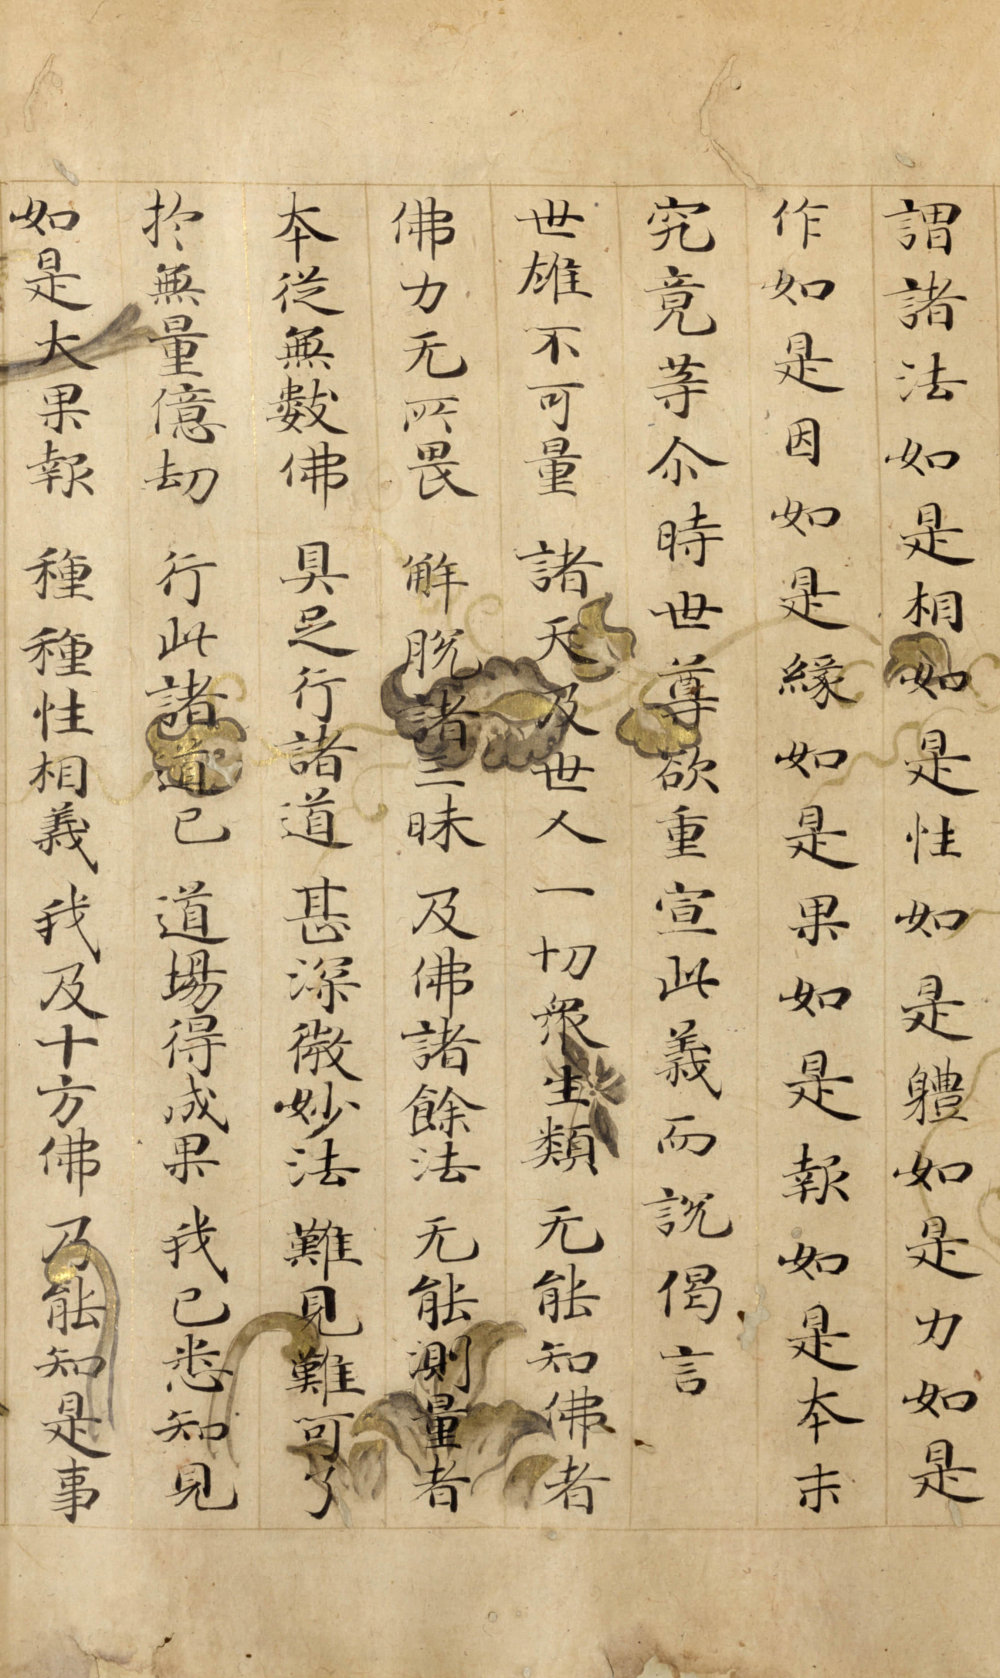 謂諸法如是相如是性如是軆如是力如是
作如是因如是緣如是果如是報如是本末
究竟等尒時世尊欲重宣此義而說偈言
世雄不可量 諸天及世人 一切衆生類 无能知佛者
佛力无所畏 解脫諸三昧 及佛諸餘法 无能測量者
本從無數佛 具足行諸道 甚深微妙法 難見難可了
於無量億劫 行此諸道已 道場得成果 我已悉知見
如是大果報 種種性相義 我及十方佛 乃能知是事